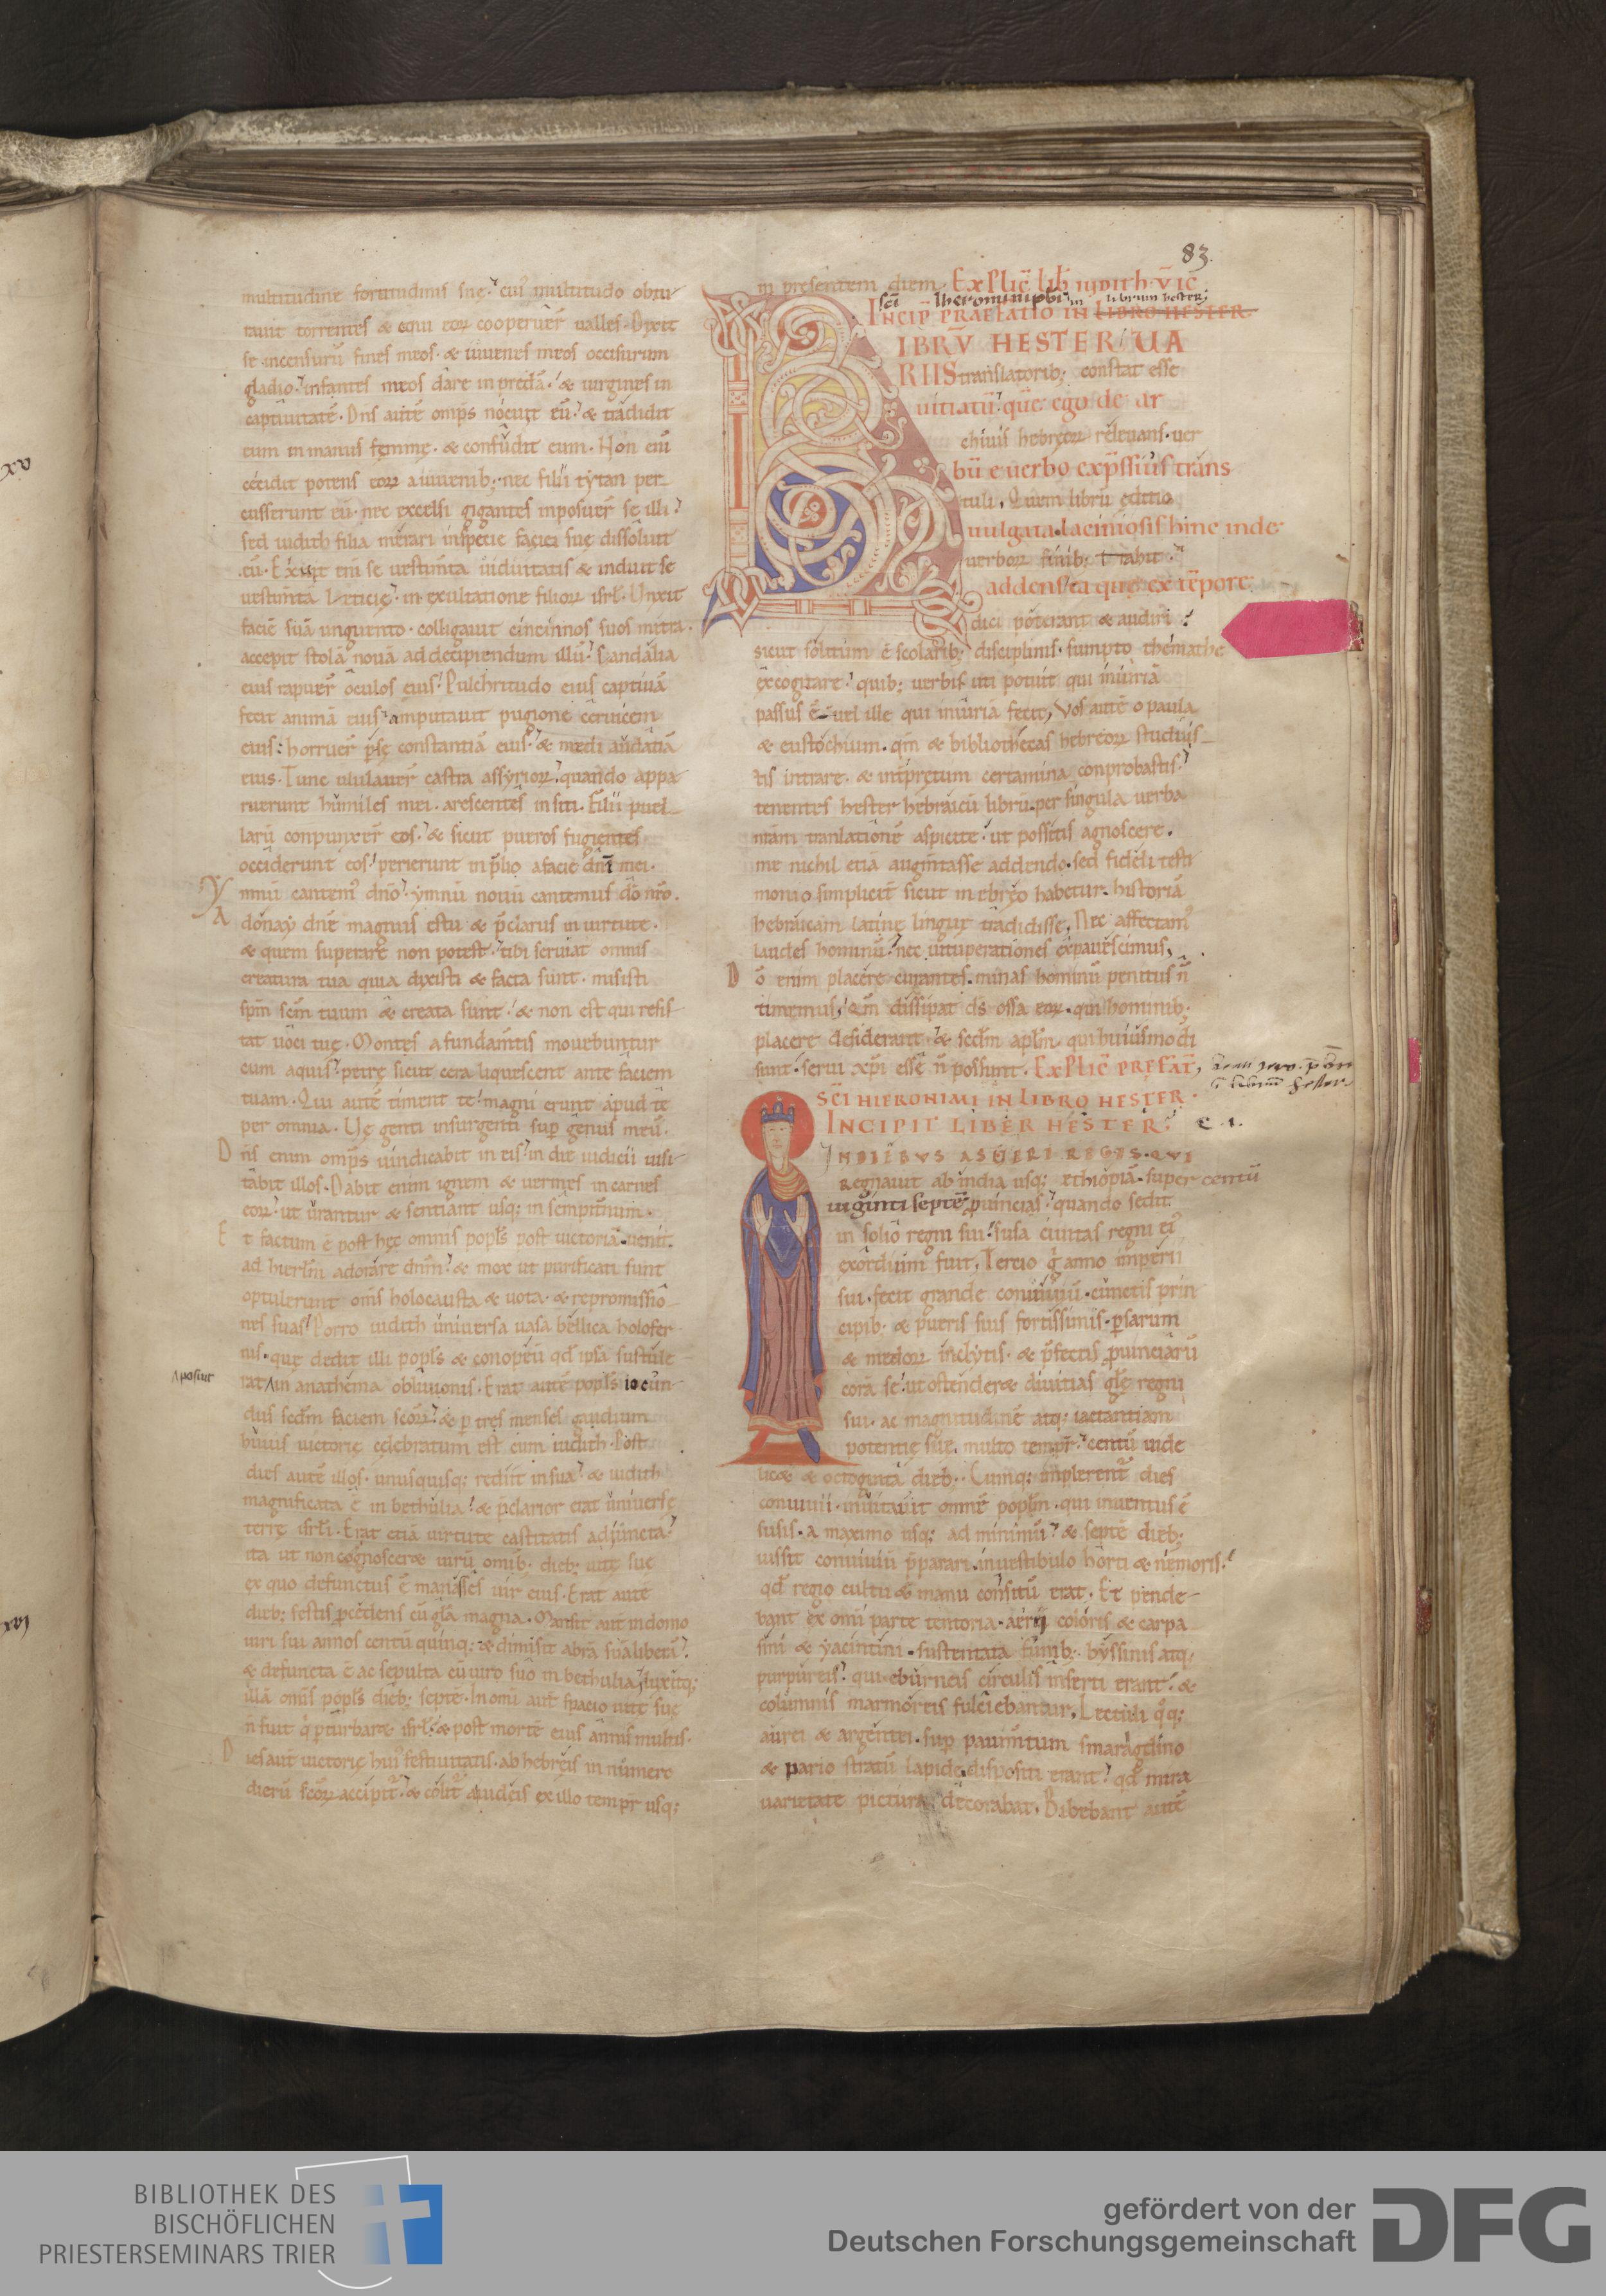 83.
multitudine fortitudinis suę. cui' multitudo obtu
rauit torrentes & equi eoꝝ cooperuer̄ ualles. Dixit
se incensurū fines meos. & iuuenes meos occisurum
gladio. infantes meos dare in predā. & uirgines in
captiuitatē. Dn̄s autē omp̄s nocuit eū. & tradidit
eum in manus femine. & confudit eum. Non eni
cecidit potens eoꝝ a iuuenib; nec filii tytan per
cusserunt eū. nec excelsi gigantes inposuer̄ se illi.
sed iudith filia merari in specie faciei suę dissoluit
eū. Exuit eni se uestim̄ta uiduitatis & induit se
uestim̄ta lęticię. in exultatione filioꝝ isrl̄. Unxit
faciē suā unguento. colligauit cincinnos suos mitra.
accepit stolā nouā ad decipiendum illū. Sandalia
eius rapuer̄ oculos eius. Pulchritudo eius captiuā
fecit animā eius. amputauit pugione ceruicem
eius. horruer̄ p̄sę constantiā eius. & medi audatiā
eius. Tunc ululauer̄ castra assyrioꝝ. quando appa
ruerunt humiles mei. arescentes in siti. Filii puel
larū conpunxer̄ eos. & sicut pueros fugientes
occiderunt eos. perierunt in p̄lio a facie dn̄i mei.
Ymnū cantem' dn̄o. ymnū nouū cantemus dō nr̄o.
Adonay dn̄e magnus es tu & p̄clarus in uirtute.
& quem superare non potest. tibi seruiat omnis
creatura tua quia dixisti & facta sunt. misisti
sp̄m scm̄ tuum & creata sunt. & non est qui resis
tat uoci tuę. Montes a fundam̄tis mouebuntur
cum aquis. petrę sicut cera liquescent ante faciem
tuam. Qui autē timent te. magni erunt apud te
per omnia. Uę genti insurgenti sup genus meū.
Dn̄s enim omp̄s uindicabit in eis. in die iudicii uisi
tabit illos. Dabit enim ignem & uermes in carnes
eoꝝ. ut urantur & sentiant usq; in sempit̄num.
Et factum ē post hęc omnis popl̄s post uictoriā. uenit
ad hierl̄m adorare dn̄m. & mox ut purificati sunt
optulerunt om̄s holocausta & uota. & repromissio
nes suas. Porro iudith uniuersa uasa bellica holofer
nis. quę dedit illi popl̄s & conopeū qd̄ ipsa sustule
rat in anathema obliuionis. Erat autē popl̄s iocun
aposiut
dus scdm̄ faciem scoꝝ. & p tres menses gaudium
huius uictorię celebratum est cum iudith. Post
dies autē illos. unusquisq; rediit in sua. & iudith
magnificata ē in bethulia. & p̄clarior erat uniuersę
terrę isrl̄i. Erat etiā uirtute castitatis adiuncta.
ita ut non cognosceret uirū omib. dieb; uitę suę
ex quo defunctus ē manasses uir eius. Erat autē
dieb; festis p̄cedens cū gl̄a magna. Mansit aut̄ in domo
uiri sui annos centū quinq; & dimisit abrā suā liberā.
& defuncta ē ac sepulta cū uiro suo in bethulia. luxitq;
illā om̄is popl̄s dieb; septē. In omi aut̄ spacio uitę suę
n̄ fuit q' p̄turbaret isrl̄. & post mortē eius annis multis.
Dies aut̄ uictorię hui' festiuitatis. ab hebreis in numero
dierū scoꝝ accipit'. & colit' a iudeis ex illo tempr̄ usq;
in presentem diem. Explic̄ lib iudith uic̄
sc̄i Iheronimi pbr̄i in librum hester;
Incip̄ praefatio in libro hester
LIBRŪ HESTER UA
RIIS translatorib; constat esse
uitiatū. quē ego de ar
chiuis hebręoꝝ releuans. uer
bū e uerbo exp̄ssius trans
tuli. Quem librū editio
uulgata. laciniosis hinc inde
uerboꝝ finib; trahit
addens ea quę ex tēpore
dici poterant & audiri.
sicut solitum ē scolarib; disciplinis. sumpto themathe
excogitare. quib; uerbis uti potuit qui iniuriā
passus ē. uel ille qui iniuriā fecit, Vos autē o paula
& eustochium. qm̄ & bibliothecas hebreoꝝ studuis
tis intrare. & int̄pretum certamina conprobastis.
tenentes hester hebraicū librū. per singula uerba
nr̄am tranlationē aspicite. ut possitis agnoscere.
me nichil etiā augm̄tasse addendo. sed fideli testi
monio simplicit̄ sicut in ebręo habetur. historiā
hebraicam latinę linguę tradidisse, Nec affectam'
laudes hominū. nec uituperationes expauescimus,
Dō enim placere curantes. minas hominū penitus n̄
timemus, qm̄ dissipat ds̄ ossa eoꝝ. qui hominib;
placere desiderant. & scdm̄ apl̄m qui huiusmodi
sunt. serui xp̄i esse n̄ possunt. Explic̄ prefat̄,
SC̄I HIERONIMI IN LIBRO HESTER.
INCIPIT LIBER HESTER. C. 1.
IN DIEBUS ASUERI REGIS. QUI
Regnauit ab india usq; ethiopiā. super centū
uiginti septē puincias. quando sedit
in solio regni sui. susa ciuitas regni ei'
exordium fuit, Tercio g' anno imperii
sui. fecit grande conuiuiū. cunctis prin
cipib. & pueris suis fortissimis. psarum
& medoꝝ inclytis. & p̄fectis puinciarū
corā se. ut ostenderet diuitias glę regni
sui. ac magnitudinē atq; iactantiam
potentię suę, multo tempr̄. centū uide
licet & octoginta dieb;. Cumq; implerent' dies
conuiuii. inuitauit omnē popl̄m. qui inuentus ē
susis. a maximo usq; ad minimū. & septē dieb;
iussit conuiuiū p̄parari. in uestibulo horti & nemoris.
qd̄ regio cultu & manu consitū erat. Et pende
bant ex omi parte tentoria. aerii coloris & carpa
sini & yacintini. sustentata funib;. byssinis atq;
purpureis. qui eburneis circulis inserti erant. &
columnis marmoreis fulciebantur, Lectuli q̊q;
aurei & argentei. sup pauim̄tum smaragdino
& pario stratū lapide. dispositi erant. qd̄ mira
uarietate pictura decorabat, Bibebant autē
xv
xvi
BIBLIOTHEK DES
BISCHÖFLICHEN
PRIESTERSEMINARS TRIER
gefördert von der
Deutschen Forschungsgemeinschaft
DFG